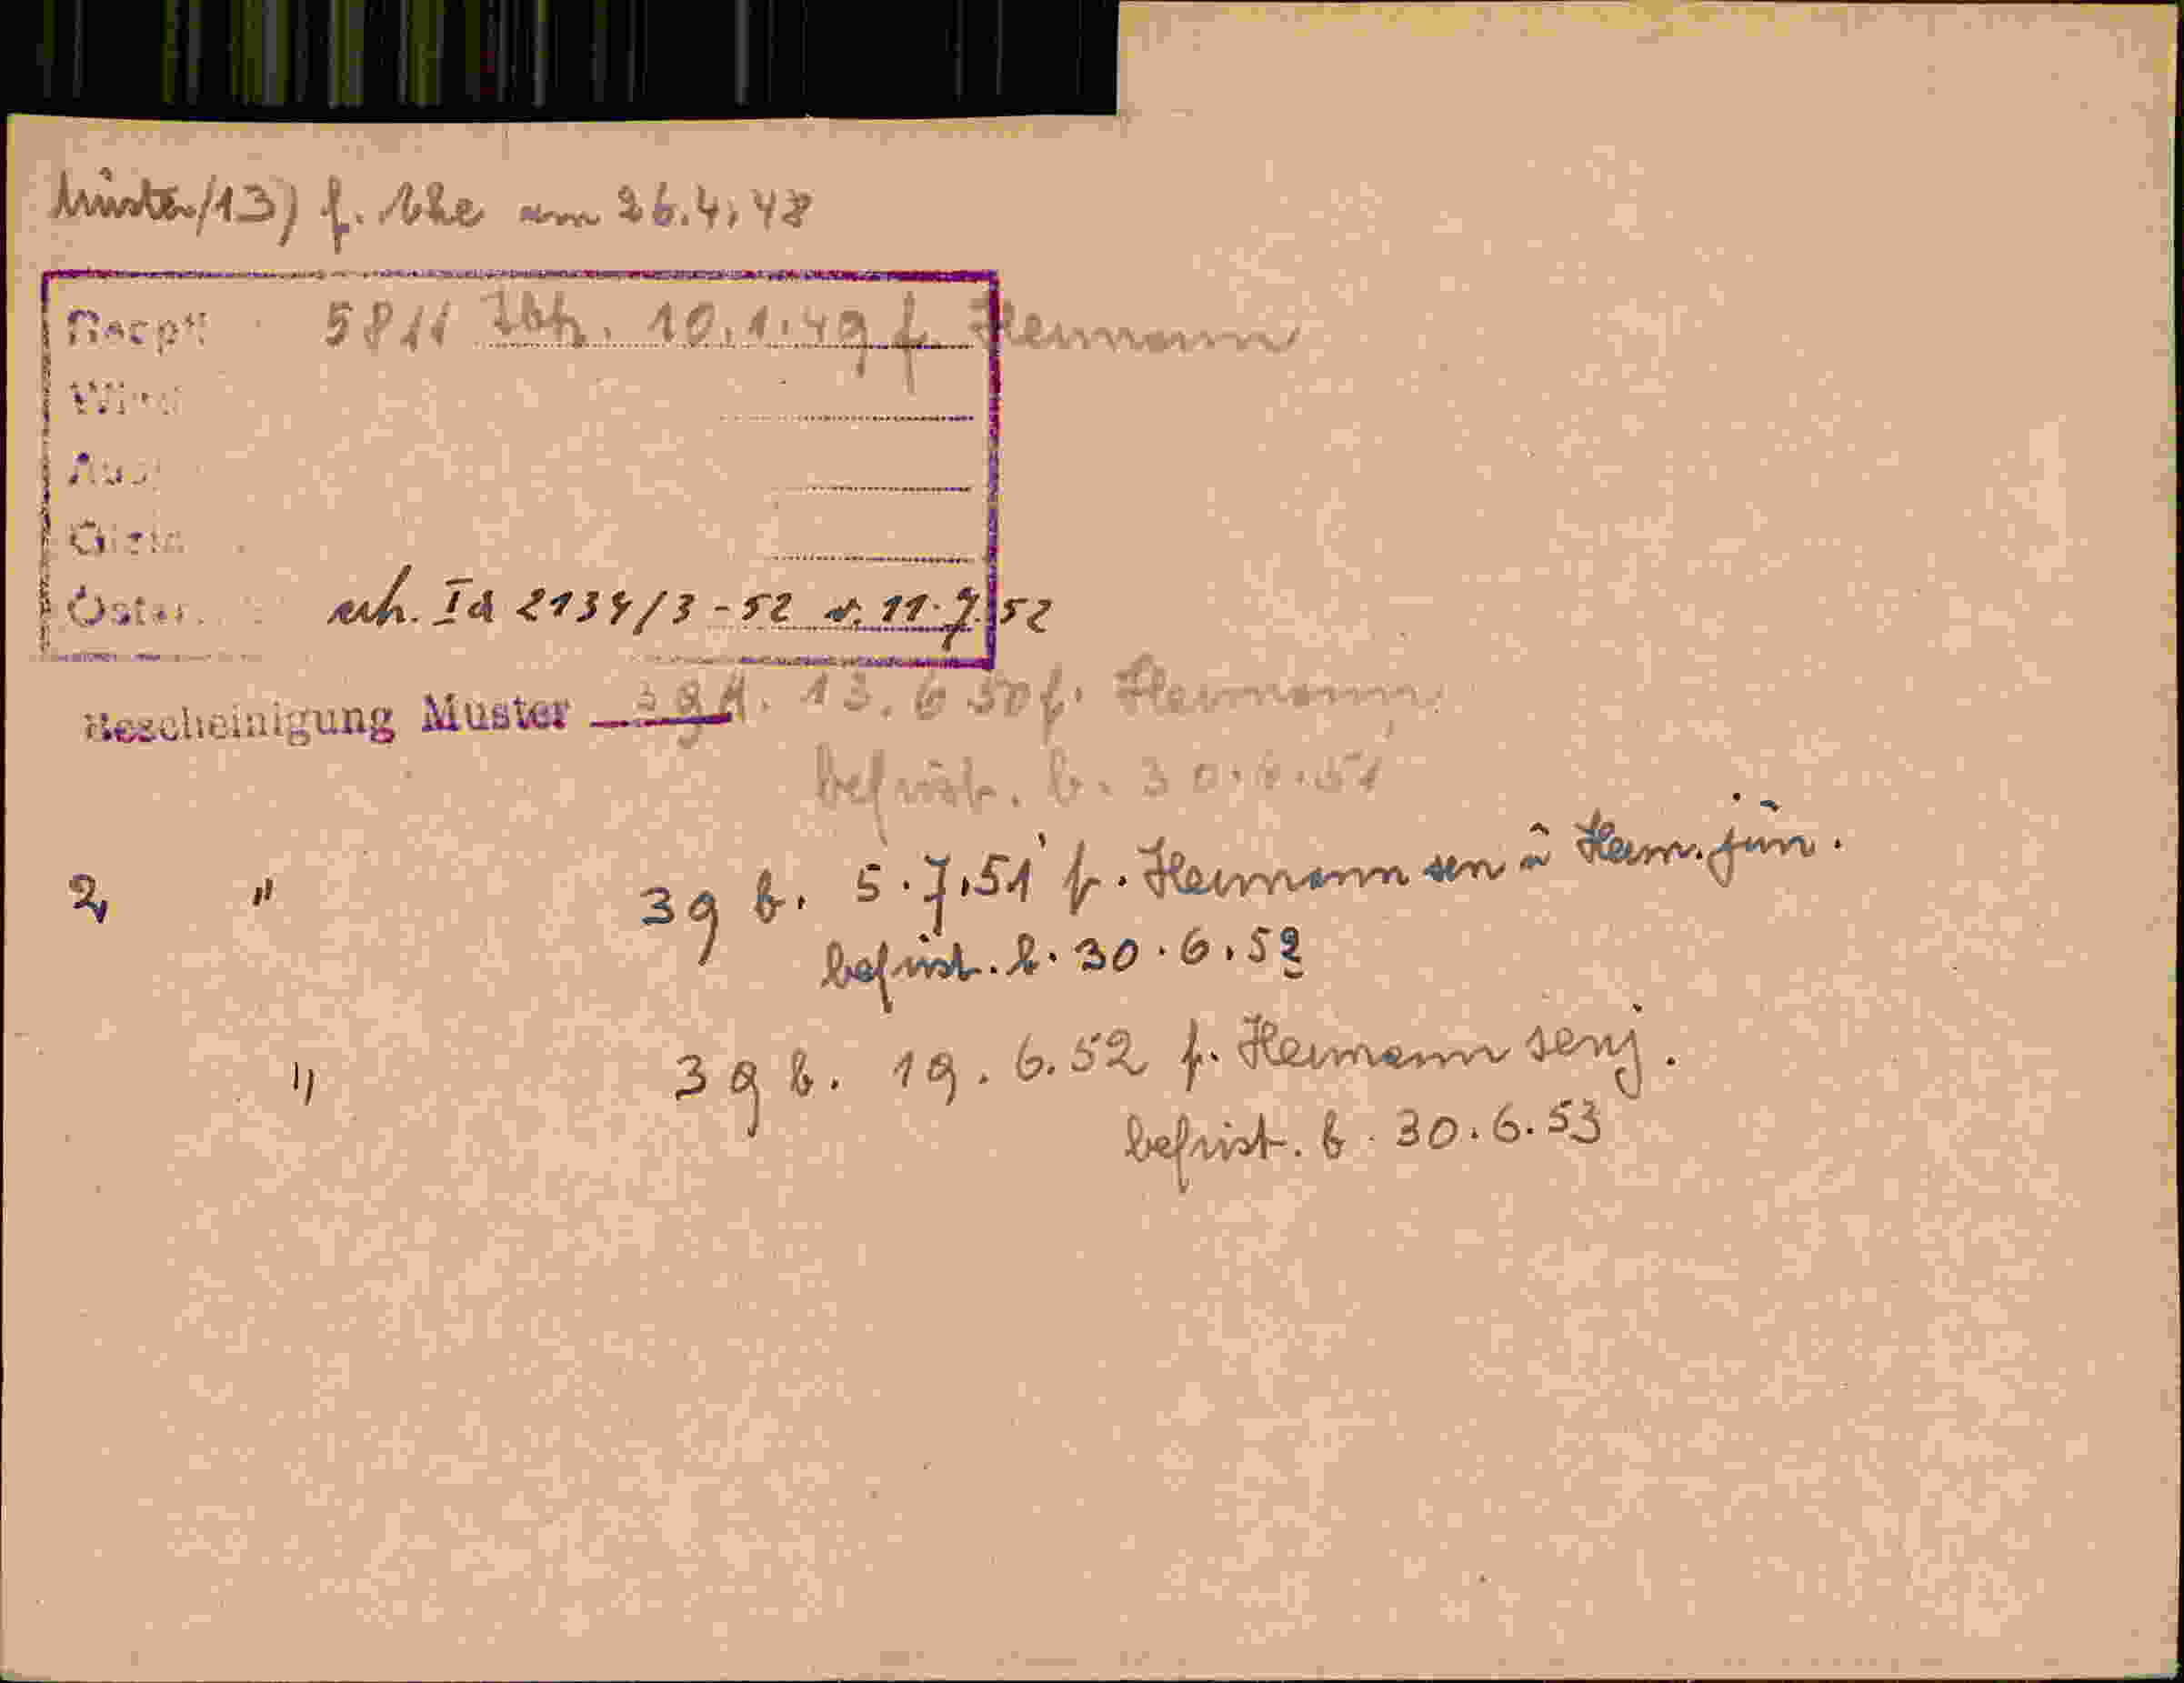 Muster/13) f. Uhe am 26.4.48
5811 10.1.49 f. Heimann
Öster. erh. Id 2134/3-52 v. 11.7.52
Bescheinigung Muster 39 A. 13.6.50 f. Heimann
befrist. b. 30.6.51
2, " 39 b. 5.7.51 f. Heimann sen u Heim. jun.
befrist. b. 30.6.52
" 39 b. 19.6.52 f. Heimann senj.
befrist. b. 30.6.53